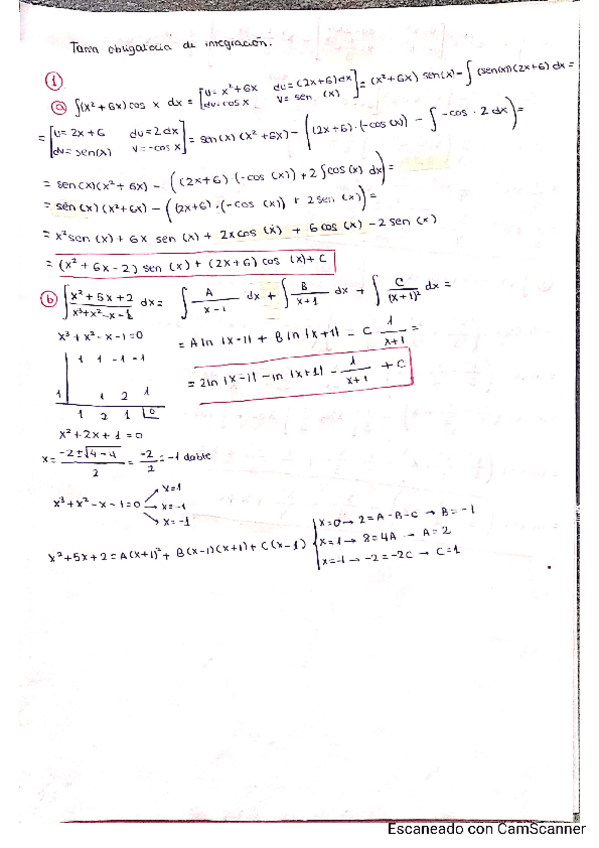 Tarea obligatoria de integración.
①
ⓐ ∫(x²+6x) cos x dx = [u = x²+6x du = (2x+6)dx
dv = cos x v = sen (x)] = (x²+6x) sen(x) - ∫(sen(x))(2x+6) dx =
= [u = 2x+6 du = 2dx
dv = sen(x) v = -cos x] = sen(x) (x²+6x) - ((2x+6)·(-cos(x)) - ∫-cos·2dx) =
= sen(x)(x²+6x) - ((2x+6)·(-cos (x)) + 2∫cos(x) dx) =
= sen(x) (x²+6x) - ((2x+6)·(-cos (x)) + 2 sen (x)) =
= x² sen(x) + 6x sen(x) + 2x cos(x) + 6 cos(x) - 2 sen(x)
= (x²+6x-2) sen(x) + (2x+6) cos(x) + C
ⓑ ∫ x²+5x+2 / x³+x²-x-1 dx = ∫ A / x-1 dx + ∫ B / x+1 dx + ∫ C / (x+1)² dx =
x³+x²-x-1=0
= A ln |x-1| + B ln |x+1| - C 1 / x+1 =
1 1 -1 -1
= 2 ln |x-1| - ln |x+1| - 1 / x+1 + C
1 1 2 1
1 2 1 0
x²+2x+1=0
x = -2±√4-4 / 2 = -2 / 2 = -1 doble
x³+x²-x-1=0 → x=1
→ x=-1
→ x=-1
x²+5x+2 = A(x+1)² + B(x-1)(x+1) + C(x-1)
x=0 → 2=A-B-C → B=-1
x=1 → 8=4A → A=2
x=-1 → -2=-2C → C=1
Escaneado con CamScanner